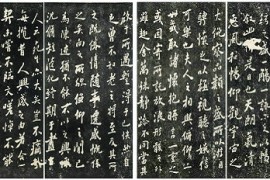 敘幽情是日也天朗氣清
惠風和暢仰觀宇宙之
大俯察品類之盛所以遊目
騁懷足以極視聽之娛信
可樂也夫人之相與俯仰一世
或取諸懷抱悟言一室之
內或因寄所託放浪形骸之外
雖趣舍萬殊靜躁不同當其
欣於所遇蹔得於己怏然自
足不知老之將至及其所之
既惓情隨事遷感慨係之
矣向之所欣俛仰之間以
為陳迹猶不能不以之興懷
況脩短隨化終期於盡古人
云死生亦大矣豈不痛哉
每攬昔人興感之由若合一
契未嘗不臨文嗟悼不能